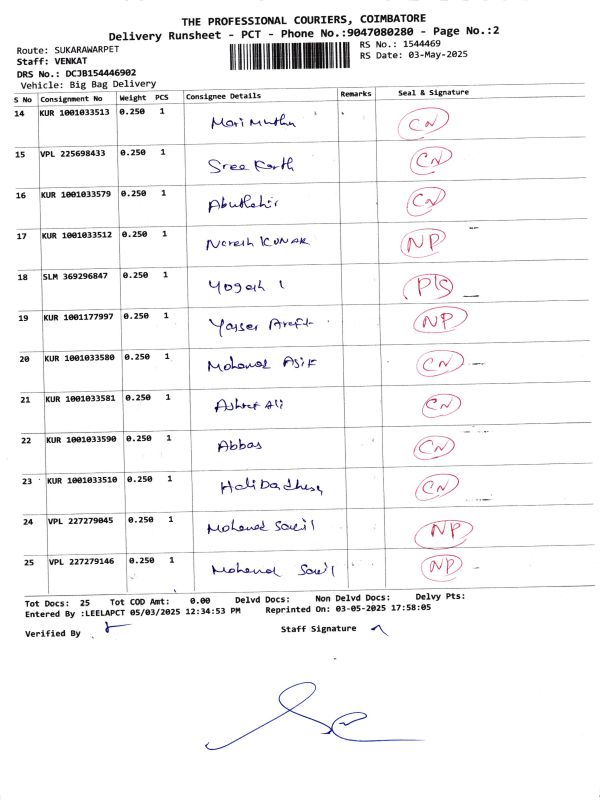 THE PROFESSIONAL COURIERS, COIMBATORE
Delivery Runsheet - PCT - Phone No.:9047080280 - Page No.:2
Route: SUKARAWARPET
RS No.: 1544469
Staff: VENKAT
RS Date: 03-May-2025
DRS No.: DCJB154446902
Vehicle: Big Bag Delivery
S No Consignment No Weight PCS Consignee Details Remarks Seal & Signature
14 KUR 1001033513 0.250 1 Mari Muthu CN
15 VPL 225698433 0.250 1 Sree Karth CN
16 KUR 1001033579 0.250 1 Abuthahir CN
17 KUR 1001033512 0.250 1 Naresh KUMAR NP
18 SLM 369296847 0.250 1 Yogesh P/S
19 KUR 1001177997 0.250 1 Yasser Arefit NP
20 KUR 1001033580 0.250 1 Mohamed Asif CN
21 KUR 1001033581 0.250 1 Ashraf Ali CN
22 KUR 1001033590 0.250 1 Abbas CN
23 KUR 1001033510 0.250 1 CN
24 VPL 227279045 0.250 1 Mohamed NP
25 VPL 227279146 0.250 1 Mohamed NP
Tot Docs: 25 Tot COD Amt: 0.00 Delvd Docs: Non Delvd Docs: Delvy Pts:
Entered By :LEELAPCT 05/03/2025 12:34:53 PM Reprinted On: 03-05-2025 17:58:05
Verified By Staff Signature